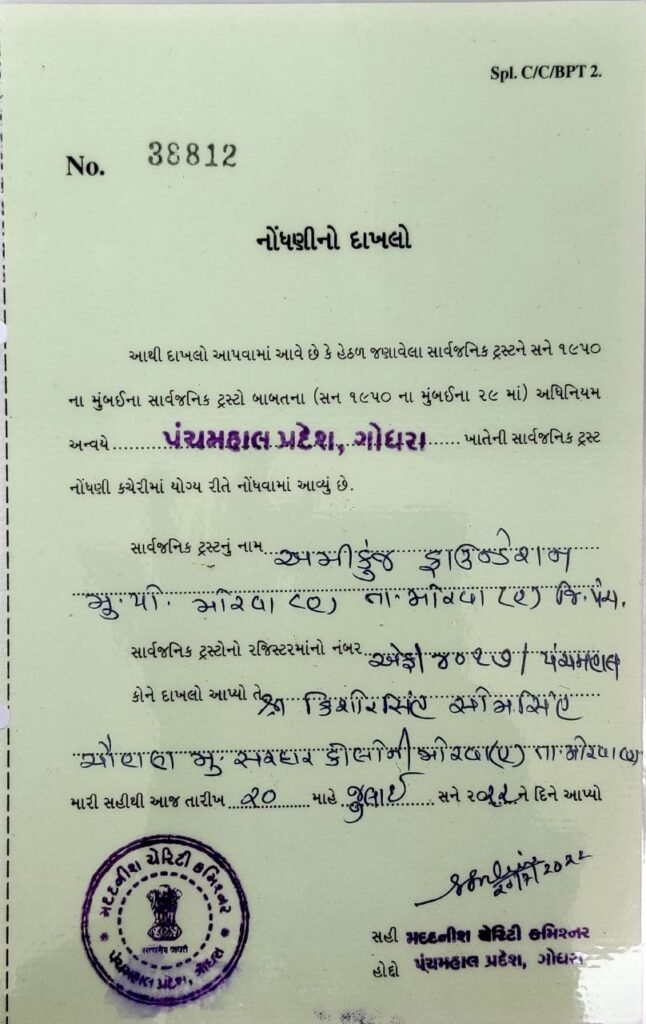 Spl. C/C/BPT 2.
No. 38812
નોંધણીનો દાખલો
આથી દાખલો આપવામાં આવે છે કે હેઠળ જણાવેલા સાર્વજનિક ટ્રસ્ટને સને ૧૯૫૦
ના મુંબઈના સાર્વજનિક ટ્રસ્ટો બાબતના (સન ૧૯૫૦ ના મુંબઈના ૨૯ માં) અધિનિયમ
અન્વયે પંચમહાલ પ્રદેશ, ગોધરા ખાતેની સાર્વજનિક ટ્રસ્ટ
નોંધણી કચેરીમાં યોગ્ય રીતે નોંધવામાં આવ્યું છે.
સાર્વજનિક ટ્રસ્ટનું નામ અમીકુંજ ફાઉન્ડેશન
મુ.પો. મોરવા (હ) તા. મોરવા (હ) જિ. પંચ.
સાર્વજનિક ટ્રસ્ટોનો રજિસ્ટરમાંનો નંબર એફ/૪૦૨૭/પંચમહાલ
કોને દાખલો આપ્યો તે શ્રી કિશોરસિંહ સોમસિંહ
ચૌહાણ મુ. સરદાર કોલોની મોરવા(હ) તા મોરવા(હ)
મારી સહીથી આજ તારીખ ૨૦ માહે જુલાઈ સને ૨૦૨૨ ને દિને આપ્યો
૨૦/૭/૨૦૨૨
સહી મદદનીશ ચેરિટી કમિશ્નર
હોદ્દો પંચમહાલ પ્રદેશ, ગોધરા
મદદનીશ ચેરિટી કમિશ્નર
सत्यमेव जयते
પંચમહાલ પ્રદેશ, ગોધરા